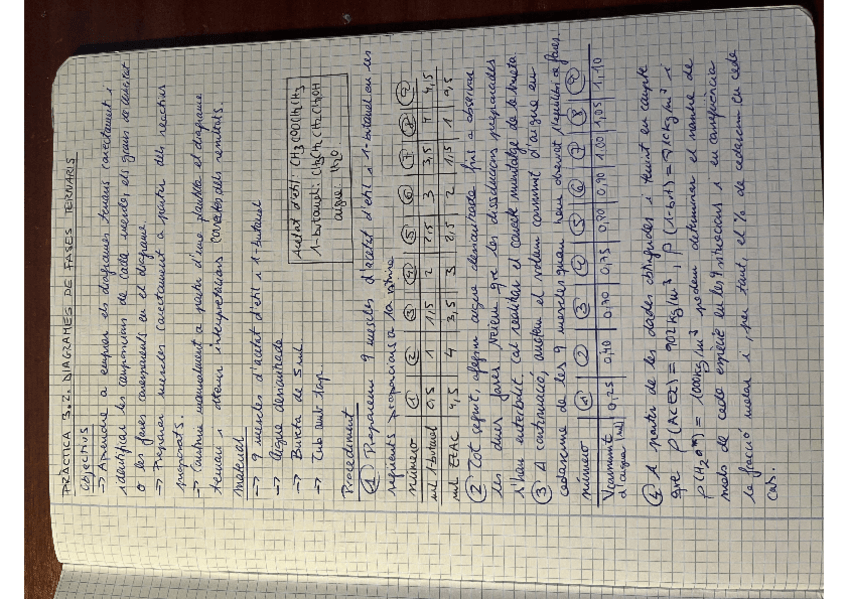 PRÀCTICA 3.2. DIAGRAMES DE FASES TERNARIS
Objectius
→ Aprendre a emprar els diagrames ternaris correctament i
identificar les composicions de cada mescla, els graus de llibertat
o les fases coexistents en el diagrama.
→ Preparar mescles correctament a partir dels reactius
preparats.
→ Construir manualment a partir d'una plantilla el diagrama
ternari i obtenir interpretacions correctes dels resultats.
Material
→ 9 mescles d'acetat d'etil i 1-butanol
→ Aigua desmineralitzada
→ Bureta de 5 ml
→ Tub amb tap
Acetat d'etil: CH3COOCH2CH3
1-butanol: CH3CH2CH2CH2OH
aigua: H2O
Procediment
① Preparem 9 mescles d'acetat d'etil i 1-butanol en les
següents proporcions a la
número ① ② ③ ④ ⑤ ⑥ ⑦ ⑧ ⑨
ml 1-butanol 0,5 1 1,5 2 2,5 3 3,5 4 4,5
ml EtAC 4,5 4 3,5 3 2,5 2 1,5 1 0,5
② Tot seguit, afegim aigua fins a observar
les dues fases. Veiem que les dissolucions preparades
s'han cal realitzar el correcte muntatge de la bureta.
③ A continuació, anotem el volum consumit d'aigua en
cadascuna de les 9 mescles quan hem observat l'equilibri de fases.
número ① ② ③ ④ ⑤ ⑥ ⑦ ⑧ ⑨
V consumit d'aigua (ml) 0,25 0,40 0,70 0,75 0,90 0,90 1,00 1,05 1,10
④ A partir de les dades obtingudes i tenint en compte
que ρ(AcEt) = 902 kg/m³, ρ(1-but) = 810 kg/m³ i
ρ(H2O) = 1000 kg/m³ podem determinar el nombre de
mols de cada espècie en les 9 situacions i en conseqüència
la fracció molar i, per tant, el % de cadascun en cada
cas.